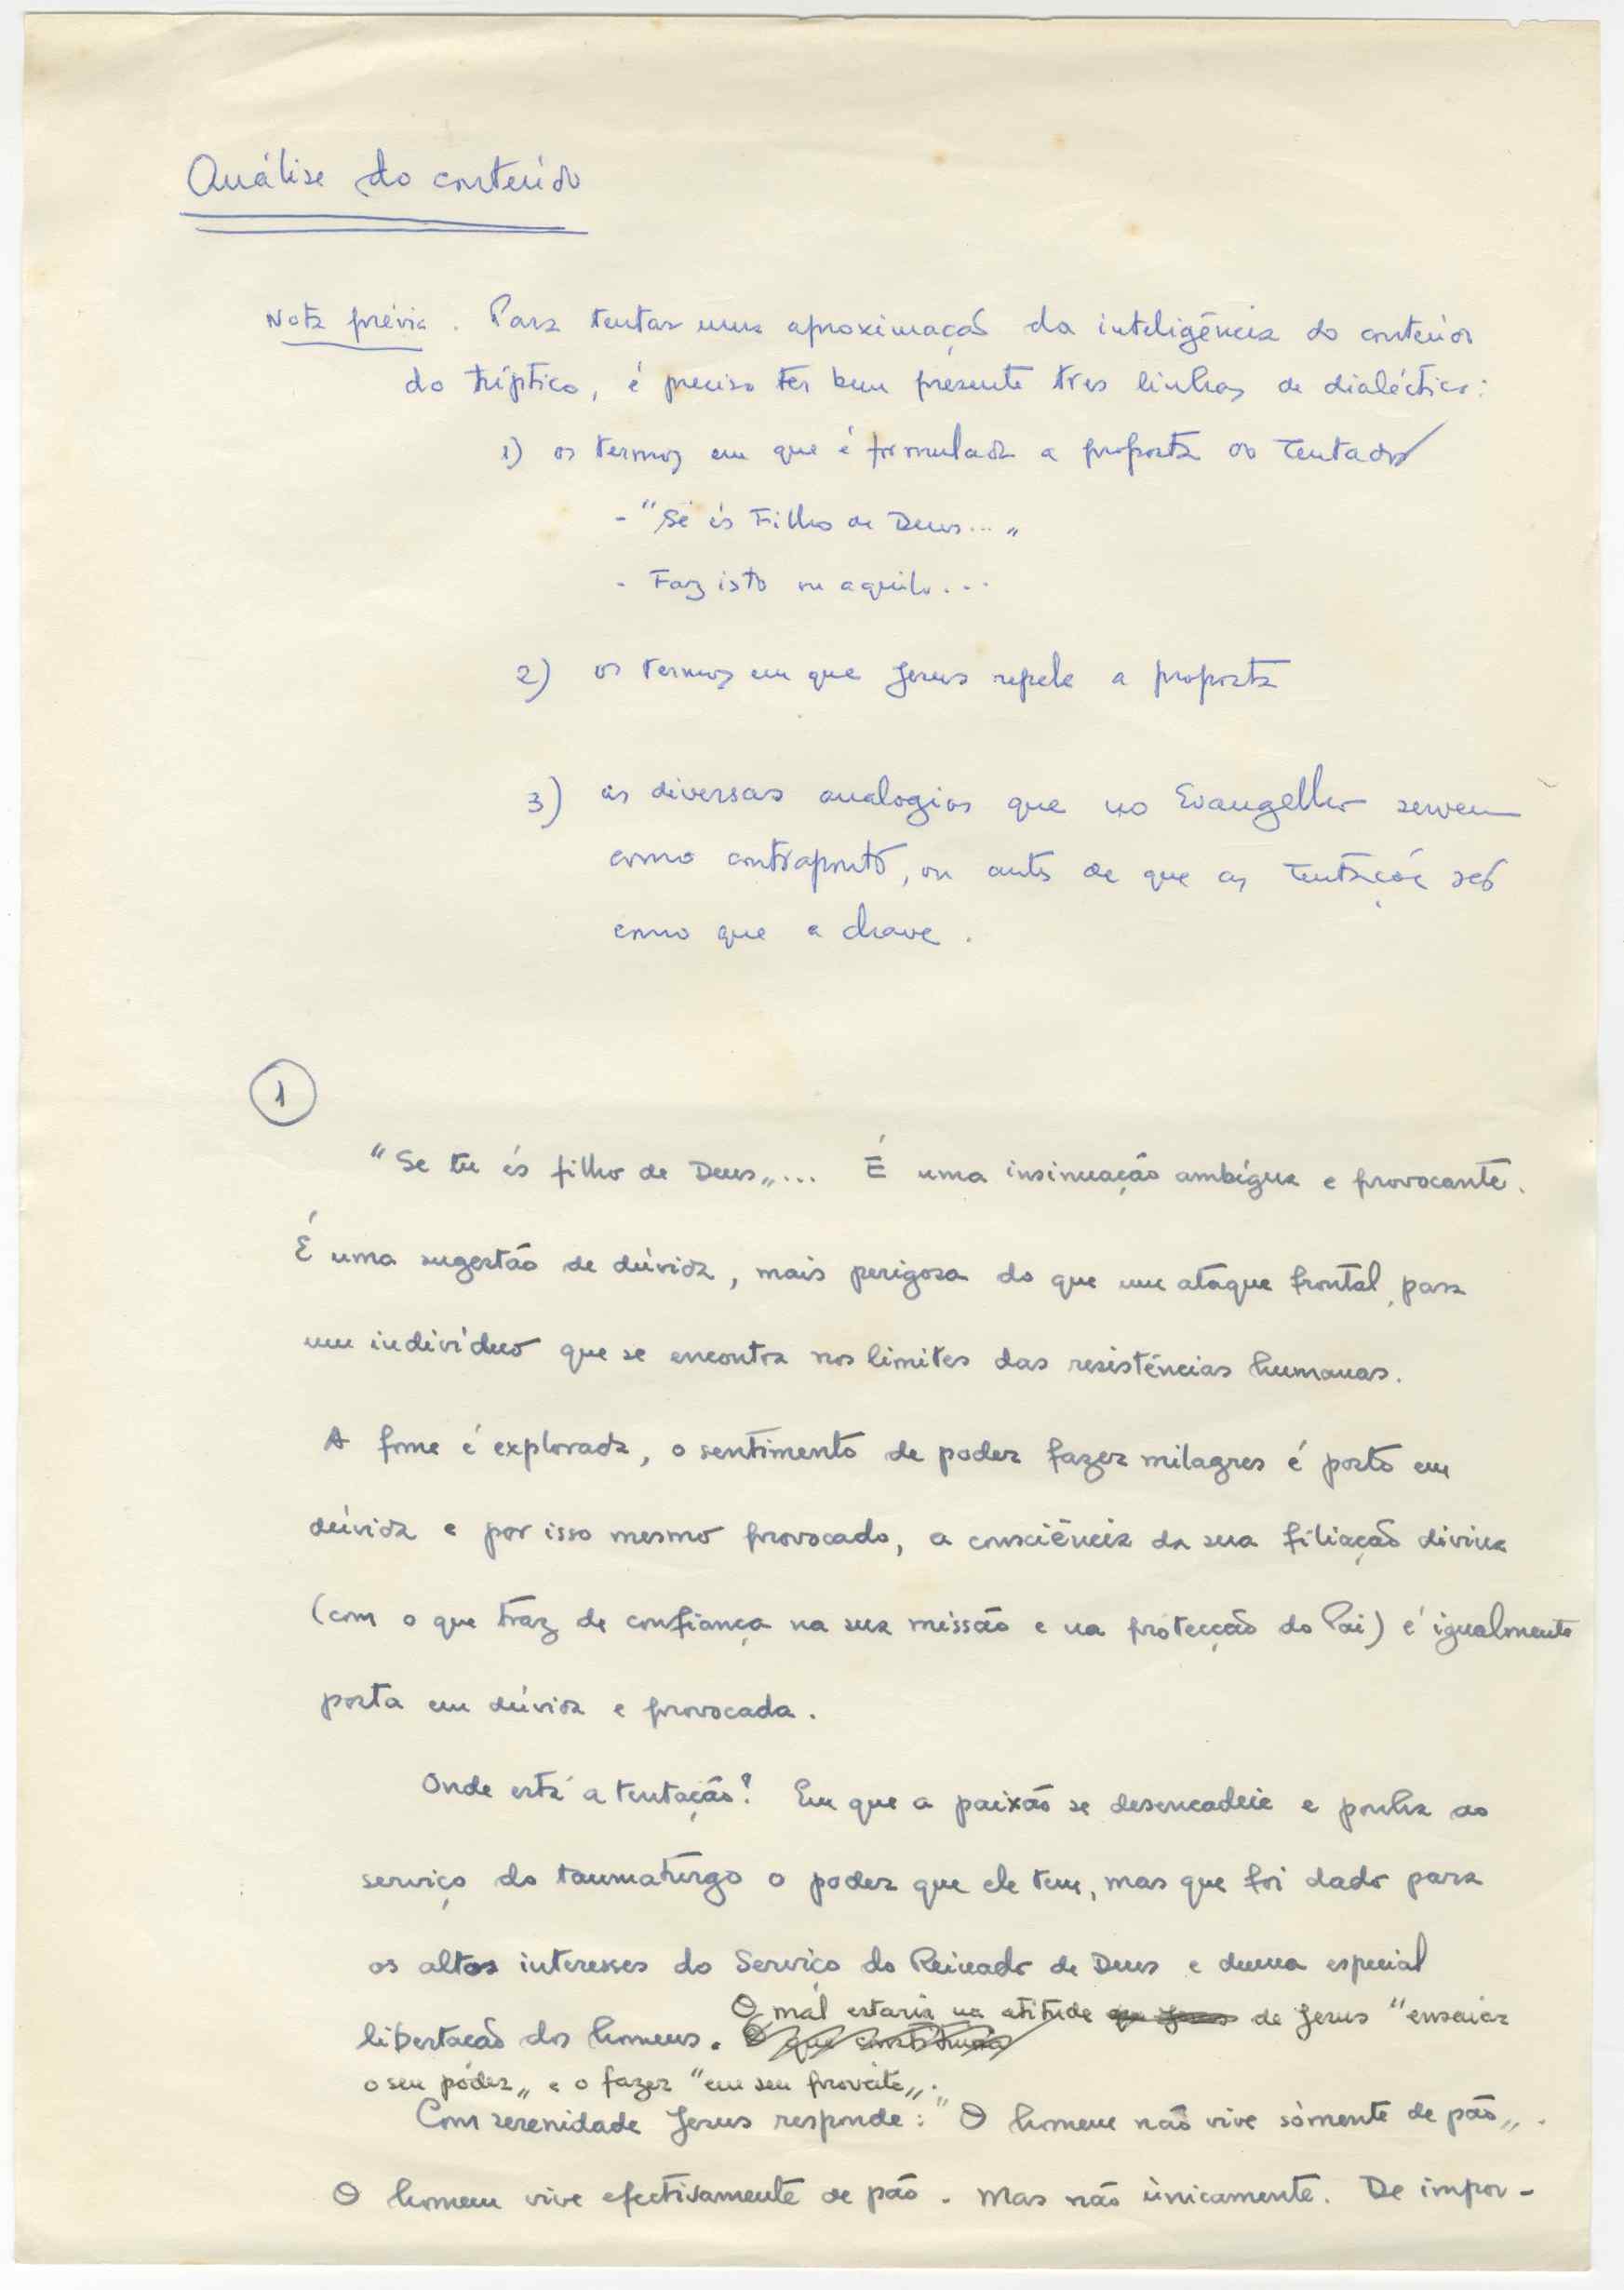 Análise do conteúdo
Nota prévia. Para tentar uma aproximação da inteligência do conteúdo
do tríptico, é preciso ter bem presente tres linhas de dialéctica:
1) os termos em que é formulada a proposta do Tentador
- "Se és Filho de Deus..."
- Faz isto ou aquilo...
2) os termos em que Jesus repele a proposta
3) as diversas analogias que no Evangelho servem
como contraponto, ou antes de que as Tentações são
como que a chave.
1
"Se tu és filho de Deus"... É uma insinuação ambígua e provocante.
É uma sugestão de dúvida, mais perigosa do que um ataque frontal, para
um indivíduo que se encontra nos limites das resistências humanas.
A fome é explorada, o sentimento de poder fazer milagres é posto em
dúvida e por isso mesmo provocado, a consciência da sua filiação divina
(com o que traz de confiança na sua missão e na protecção do Pai) é igualmente
posta em dúvida e provocada.
Onde está a tentação? Em que a paixão se desencadeie e ponha ao
serviço do taumaturgo o poder que ele tem, mas que foi dado para
os altos interesses do Serviço do Reinado de Deus e duma especial
libertação dos homens. O mal estaria na atitude de Jesus "ensaiar
o seu poder" e o fazer "em seu proveito".
Com serenidade Jesus responde: "O homem não vive sòmente de pão".
O homem vive efectivamente de pão. Mas não ùnicamente. De impor-